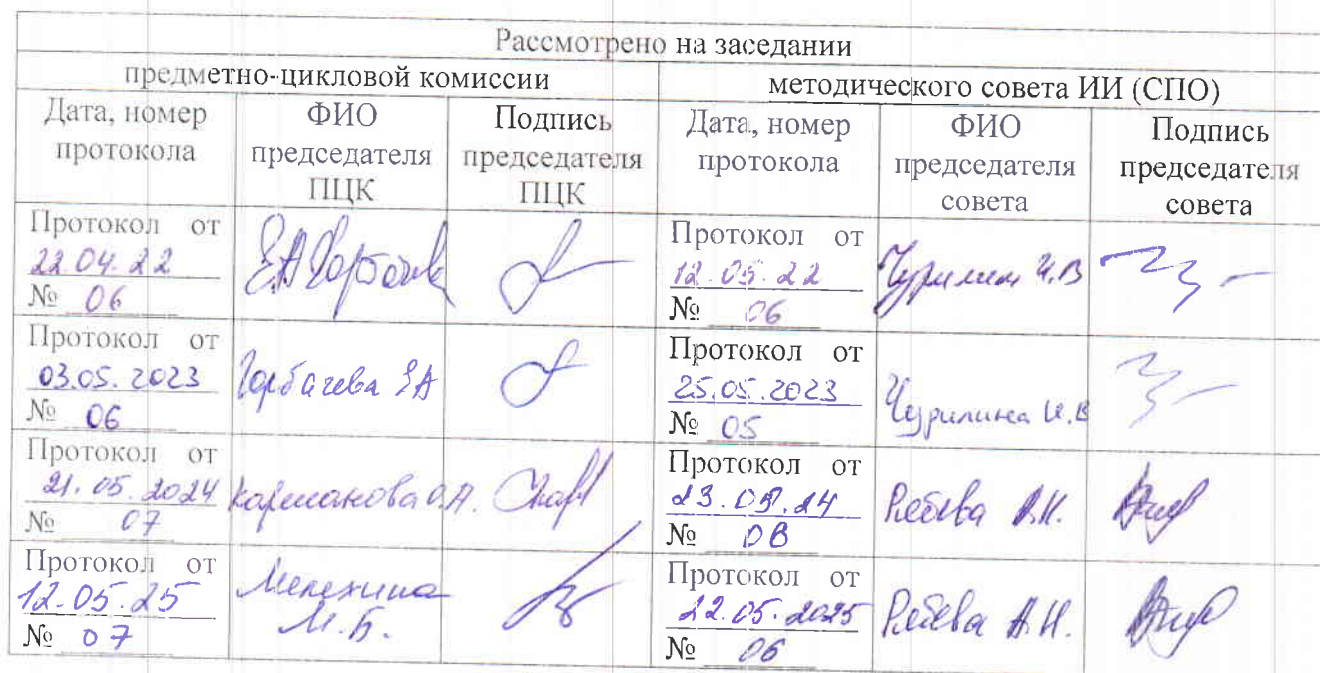 Рассмотрено на заседании
предметно-цикловой комиссии
методического совета ИИ (СПО)
Дата, номер протокола
ФИО председателя ПЦК
Подпись председателя ПЦК
Дата, номер протокола
ФИО председателя совета
Подпись председателя совета
Протокол от
22.04.22
№ 06
Протокол от
12.05.22
№ 06
И.В
Протокол от
03.05.2023
№ 06
Горбачева ЕА
Протокол от
25.05.2023
№ 05
Чурилина И.В
Протокол от
21.05.2024
№ 07
Протокол от
23.05.24
№ 08
Протокол от
12.05.25
№ 07
Мелехина
М.Б.
Протокол от
22.05.2025
№ 06
А.Н.